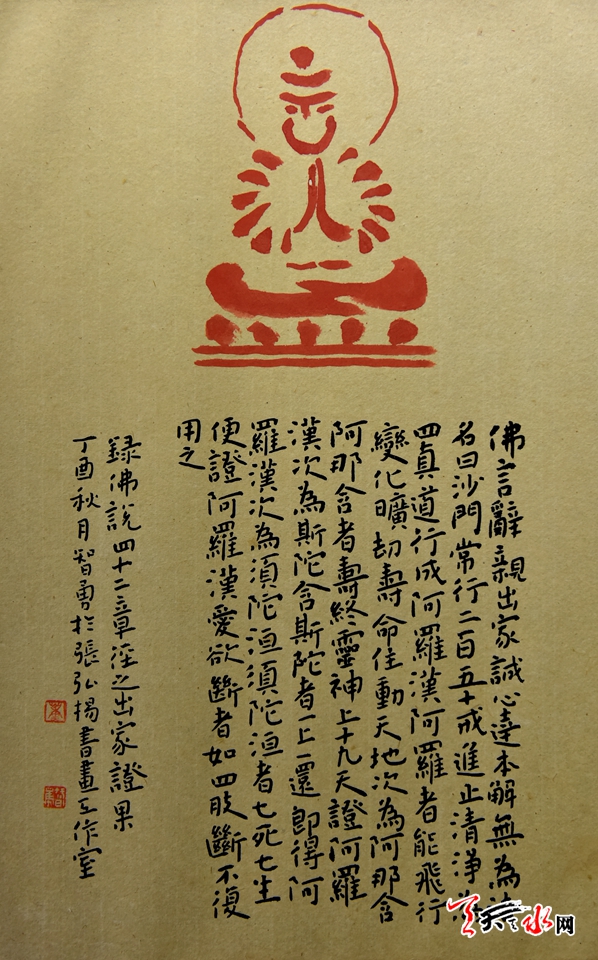 佛言辭親出家誠心達本解無為法
名曰沙門常行二百五十戒進止清淨為
四真道行成阿羅漢阿羅者能飛行
變化曠劫壽命住動天地次為阿那含
阿那含者壽終靈神上十九天證阿羅
漢次為斯陀含斯陀者一上一還即得阿
羅漢次為須陀洹須陀洹者七死七生
便證阿羅漢愛欲斷者如四肢斷不復
用之
録佛說四十二章經之出家證果
丁酉秋月智勇於張弘揚書畫工作室
天天天水网